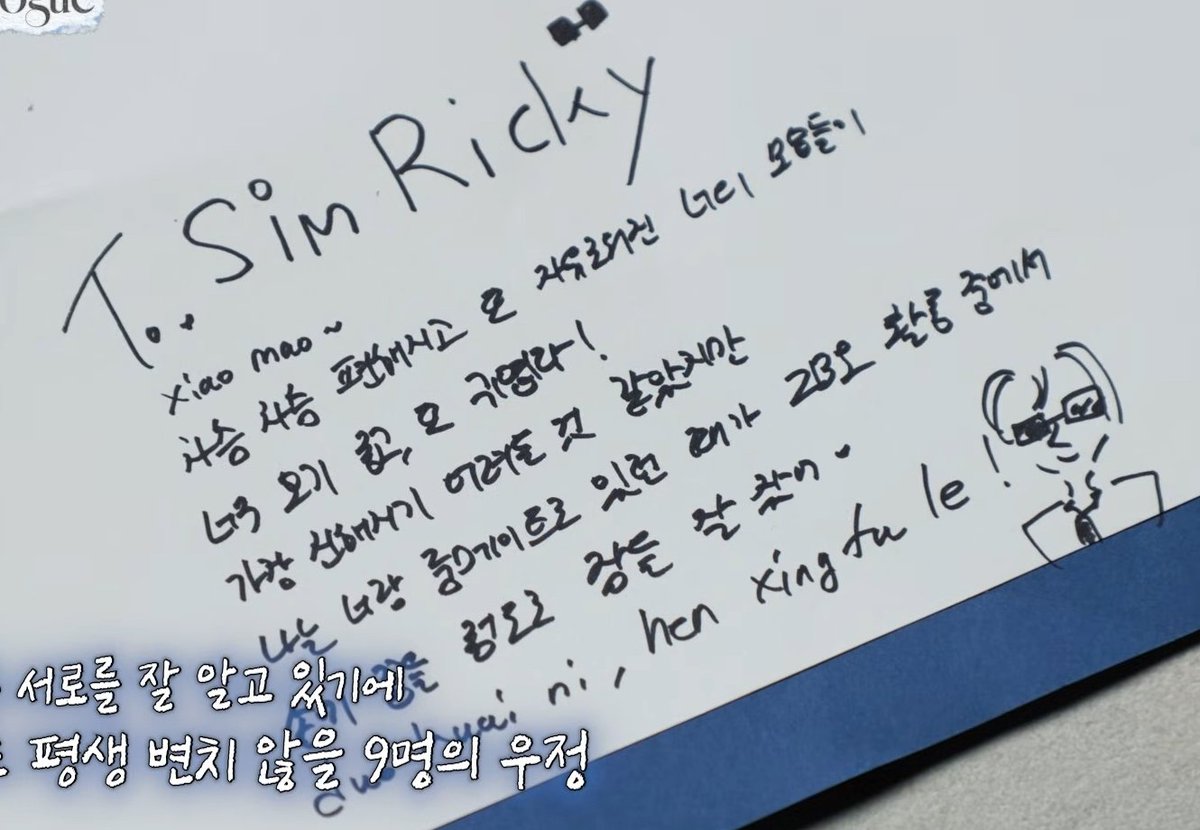 ogue
T.. Sim Ricky
xiao mao~
차츰 차츰 편해지고 또 자유로워진 너의 모습들이
너무 보기 좋고, 또 귀엽다!
가장 친해지기 어려울 것 같았지만
나는 너랑 룸메이트로 있던 때가 활동 중에서
정도로 잠을 잘 잤어.
ni, hen xing fu le!
서로를 잘 알고 있기에
평생 변치 않을 9명의 우정